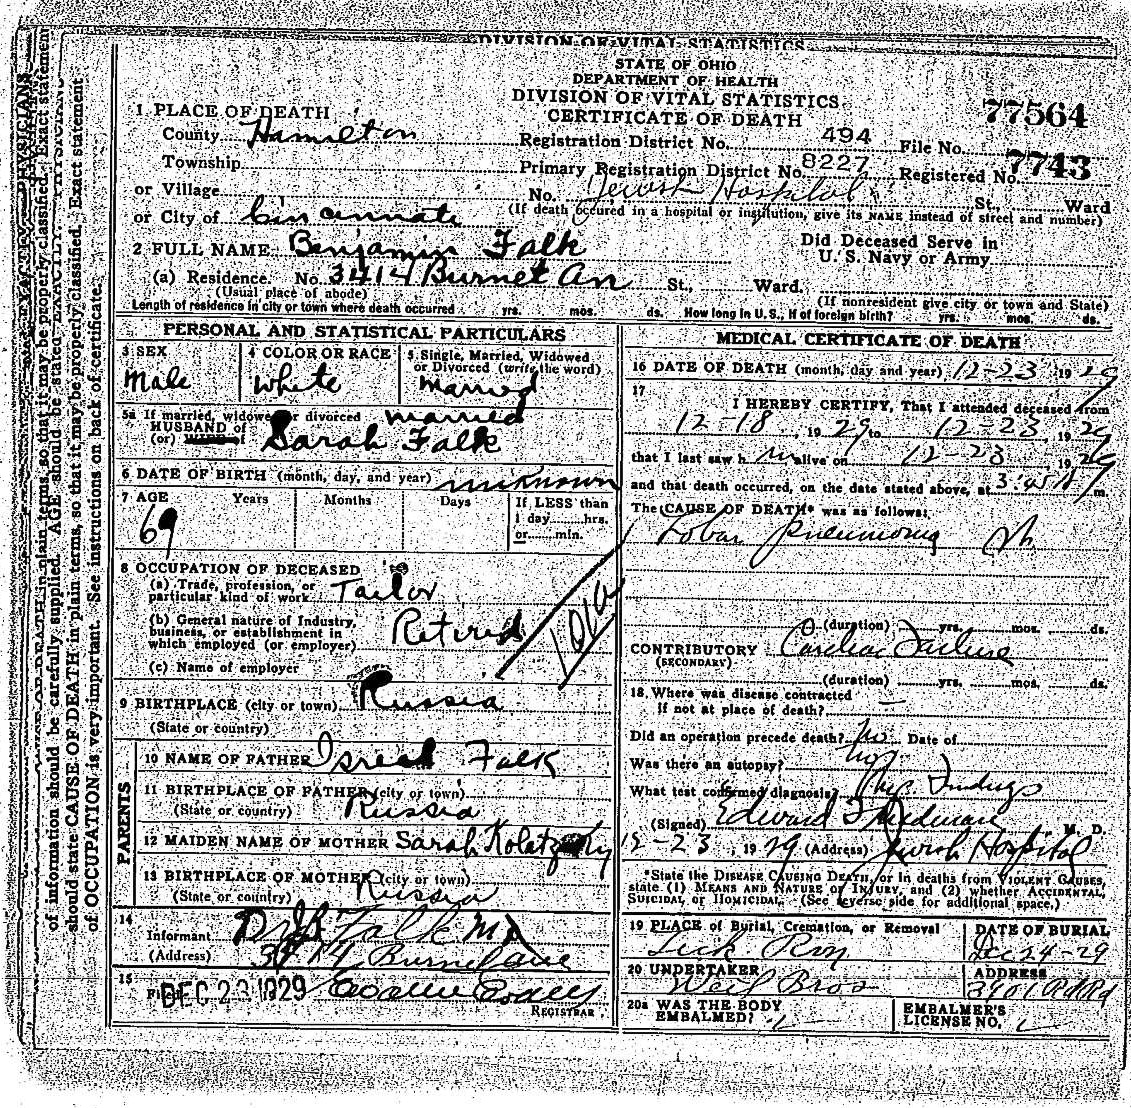 DIVISION OF VITAL STATISTICS
STATE OF OHIO
DEPARTMENT OF HEALTH
DIVISION OF VITAL STATISTICS
CERTIFICATE OF DEATH
77564
1 PLACE OF DEATH
County Hamilton
Registration District No. 494 File No.
Township
Primary Registration District No. 8227 Registered No. 7743
or Village
No. Jewish Hospital St., Ward
or City of Cincinnati
(If death occured in a hospital or institution, give its NAME instead of street and number)
2 FULL NAME Benjamin Falk
Did Deceased Serve in
U. S. Navy or Army
(a) Residence. No. 3414 Burnet Av St., Ward.
(Usual place of abode)
(If nonresident give city or town and State)
Length of residence in city or town where death occurred yrs. mos. ds. How long in U. S., if of foreign birth? yrs. mos. ds.
PERSONAL AND STATISTICAL PARTICULARS
3 SEX
Male
4 COLOR OR RACE
White
5 Single, Married, Widowed
or Divorced (write the word)
Married
5a If married, widowed or divorced married
HUSBAND of
(or) WIFE of
Sarah Falk
6 DATE OF BIRTH (month, day, and year) unknown
7 AGE Years Months Days
69
If LESS than
1 day hrs.
or min.
8 OCCUPATION OF DECEASED
(a) Trade, profession, or
particular kind of work Tailor
(b) General nature of Industry,
business, or establishment in
which employed (or employer) Retired
(c) Name of employer
9 BIRTHPLACE (city or town) Russia
(State or country)
PARENTS
10 NAME OF FATHER Isreal Falk
11 BIRTHPLACE OF FATHER (city or town)
(State or country) Russia
12 MAIDEN NAME OF MOTHER Sarah
13 BIRTHPLACE OF MOTHER (city or town)
(State or country) Russia
14
Informant Falk MD
(Address) 3414 Burnet ave
15
Filed DEC 23 1929
REGISTRAR
MEDICAL CERTIFICATE OF DEATH
16 DATE OF DEATH (month, day and year) 12-23 1929
17
I HEREBY CERTIFY, That I attended deceased from
12-18, 1929 to 12-23, 1929
that I last saw him alive on 12-23, 1929
and that death occurred, on the date stated above, at 3:45 m.
The CAUSE OF DEATH* was as follows:
Lobar pneumonia
(duration) yrs. mos. ds.
CONTRIBUTORY Cardiac Failure
(SECONDARY)
(duration) yrs. mos. ds.
18. Where was disease contracted
if not at place of death? —
Did an operation precede death? No Date of
Was there an autopsy? No
What test confirmed diagnosis? Findings
(Signed) Edward Friedman, M. D.
12-23, 1929 (Address) Jewish Hospital
*State the DISEASE CAUSING DEATH, or in deaths from VIOLENT CAUSES,
state (1) MEANS AND NATURE OF INJURY, and (2) whether ACCIDENTAL,
SUICIDAL or HOMICIDAL. (See reverse side for additional space.)
19 PLACE of Burial, Cremation, or Removal
Lick Run
DATE OF BURIAL
Dec 24-29
20 UNDERTAKER
Weil Bros
ADDRESS
3901 Rd Rd
20a WAS THE BODY
EMBALMED?
EMBALMER'S
LICENSE NO.
of information should be carefully supplied. AGE should be stated EXACTLY. PHYSICIANS
should state CAUSE OF DEATH in plain terms, so that it may be properly classified. Exact statement
of OCCUPATION is very important. See instructions on back of certificate.